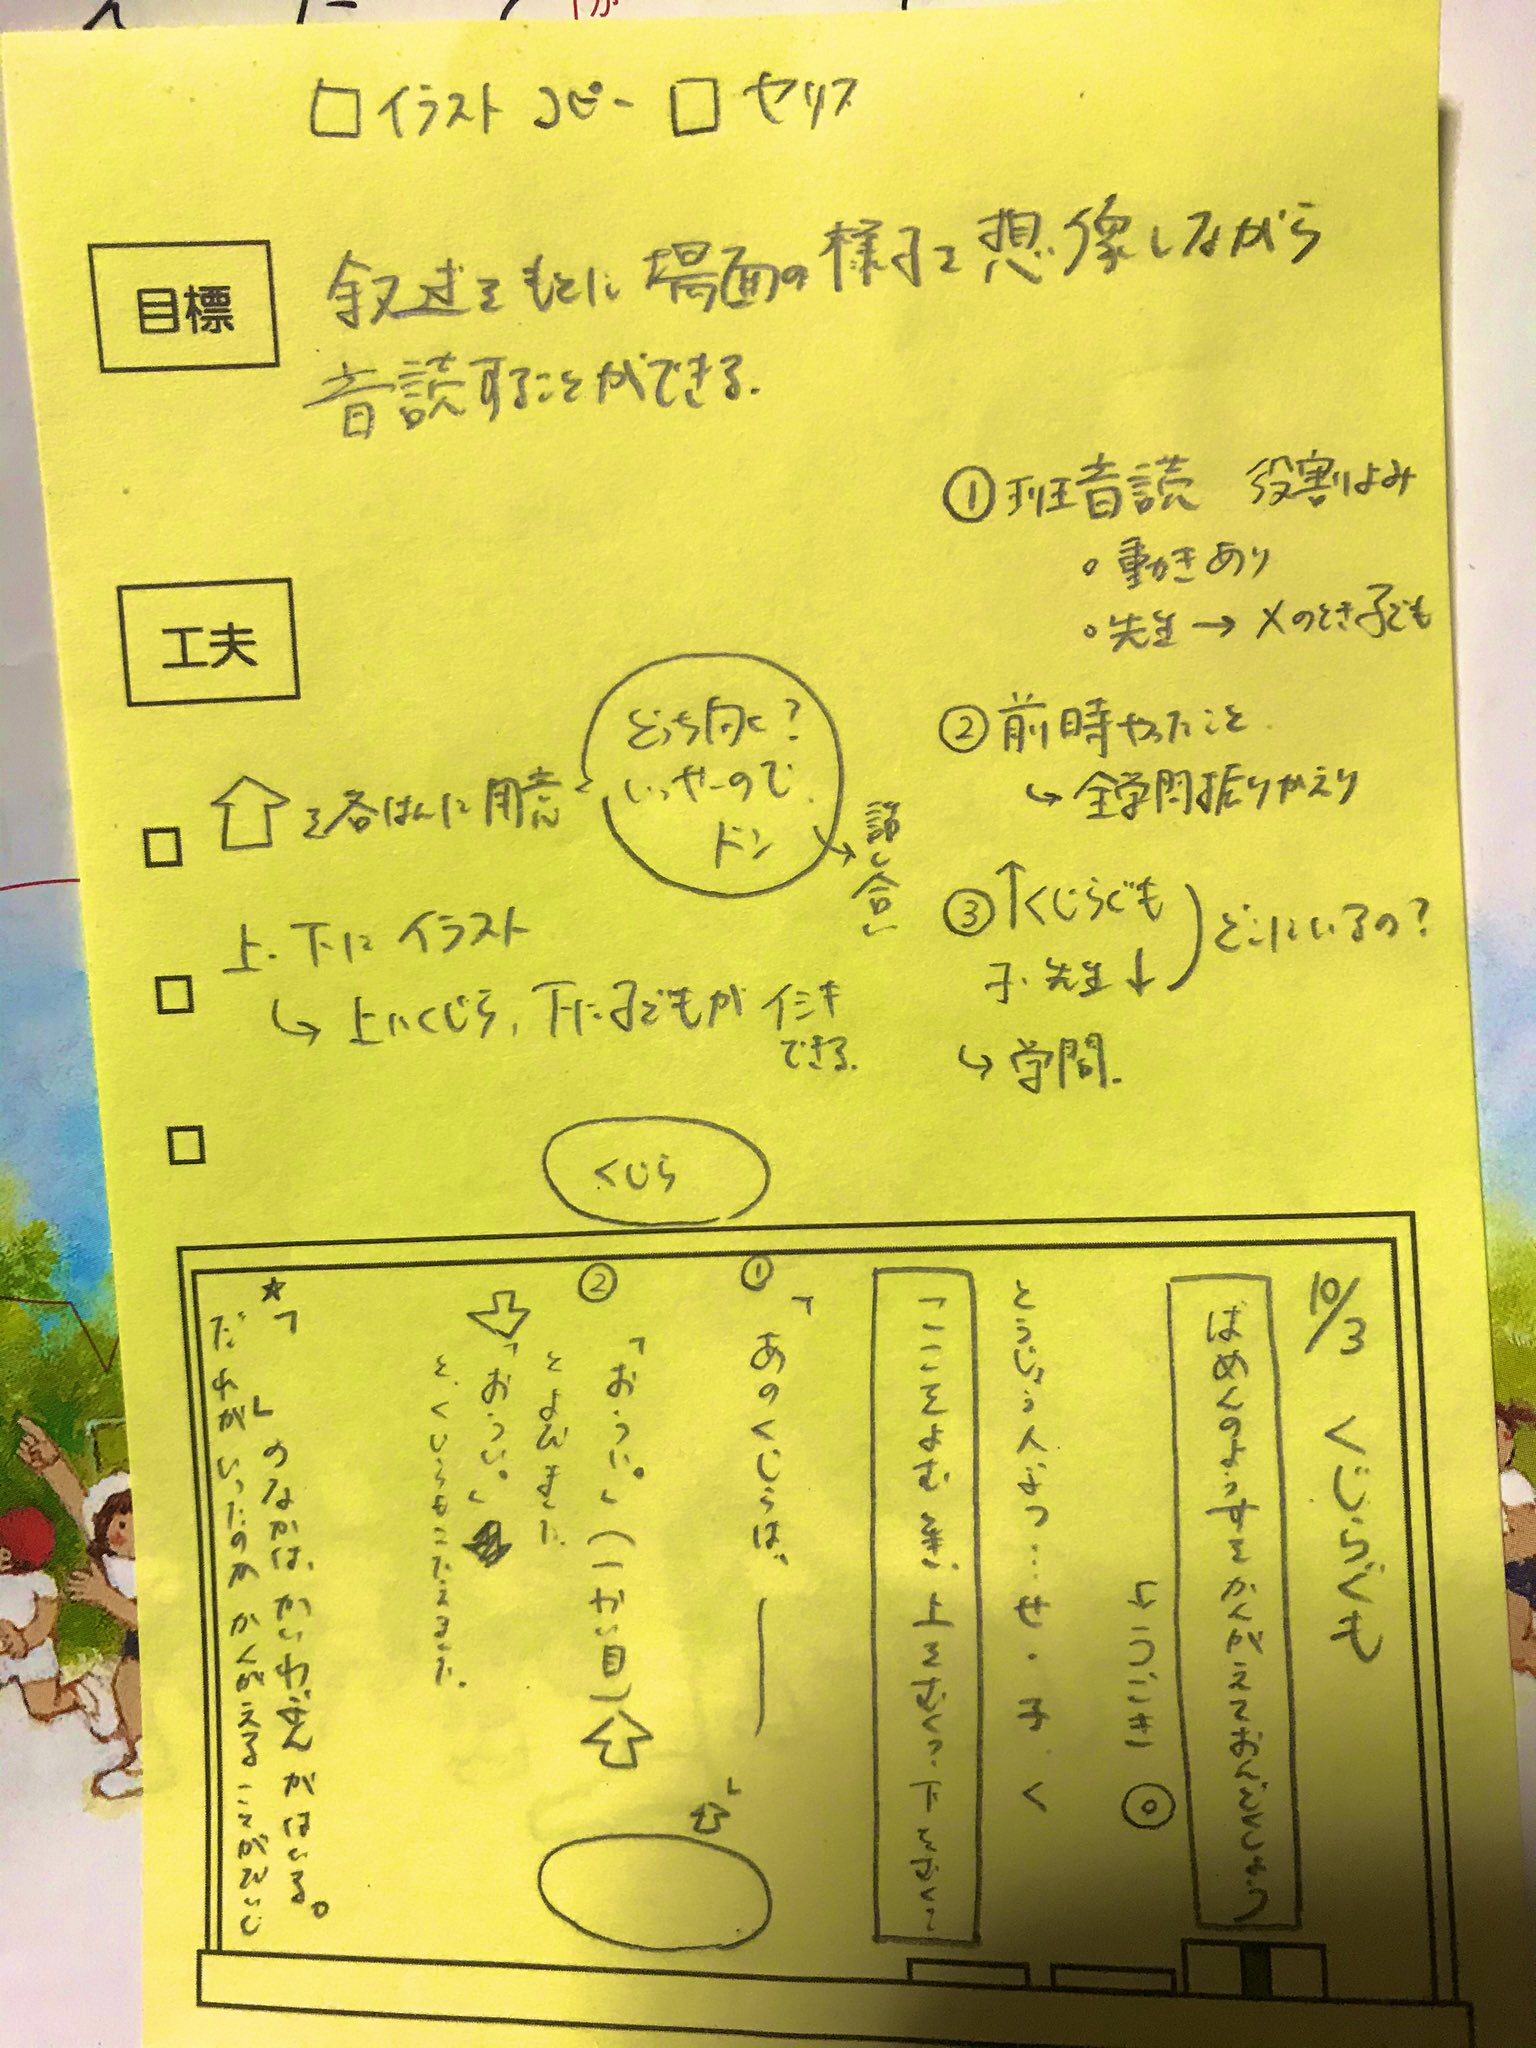 □イラスト コピー □セリフ
目標
叙述をもとに場面の様子を想像しながら
音読することができる.
①班音読 役割よみ
・動きあり
・先生→×のとき子ども
②前時やったこと.
↳全学問振りかえり
③↑くじらぐも
子・先生↓
どこにいるの?
↳学問.
工夫
□ ⇧を各はんに用意
どっち向く?
いっせーので
ドン
→話し合い
□ 上・下にイラスト
↳上にくじら, 下に子どもがイミキ
できる.
□
くじら
10/3 くじらぐも
ばめんのようすをかんがえておんどくしよう
とうじょう人ぶつ…せ・子・く
「ここをよむ 楽 上をむく・下をむく
① 「あのくじらは、
」
② 「おうい。」(一お い目)
とよびました
「おうい。」
と、くじらもこたえました。
★「 」のなかは、かいわぶんがはいる。
だれがいったのかかんがえることがだいじ